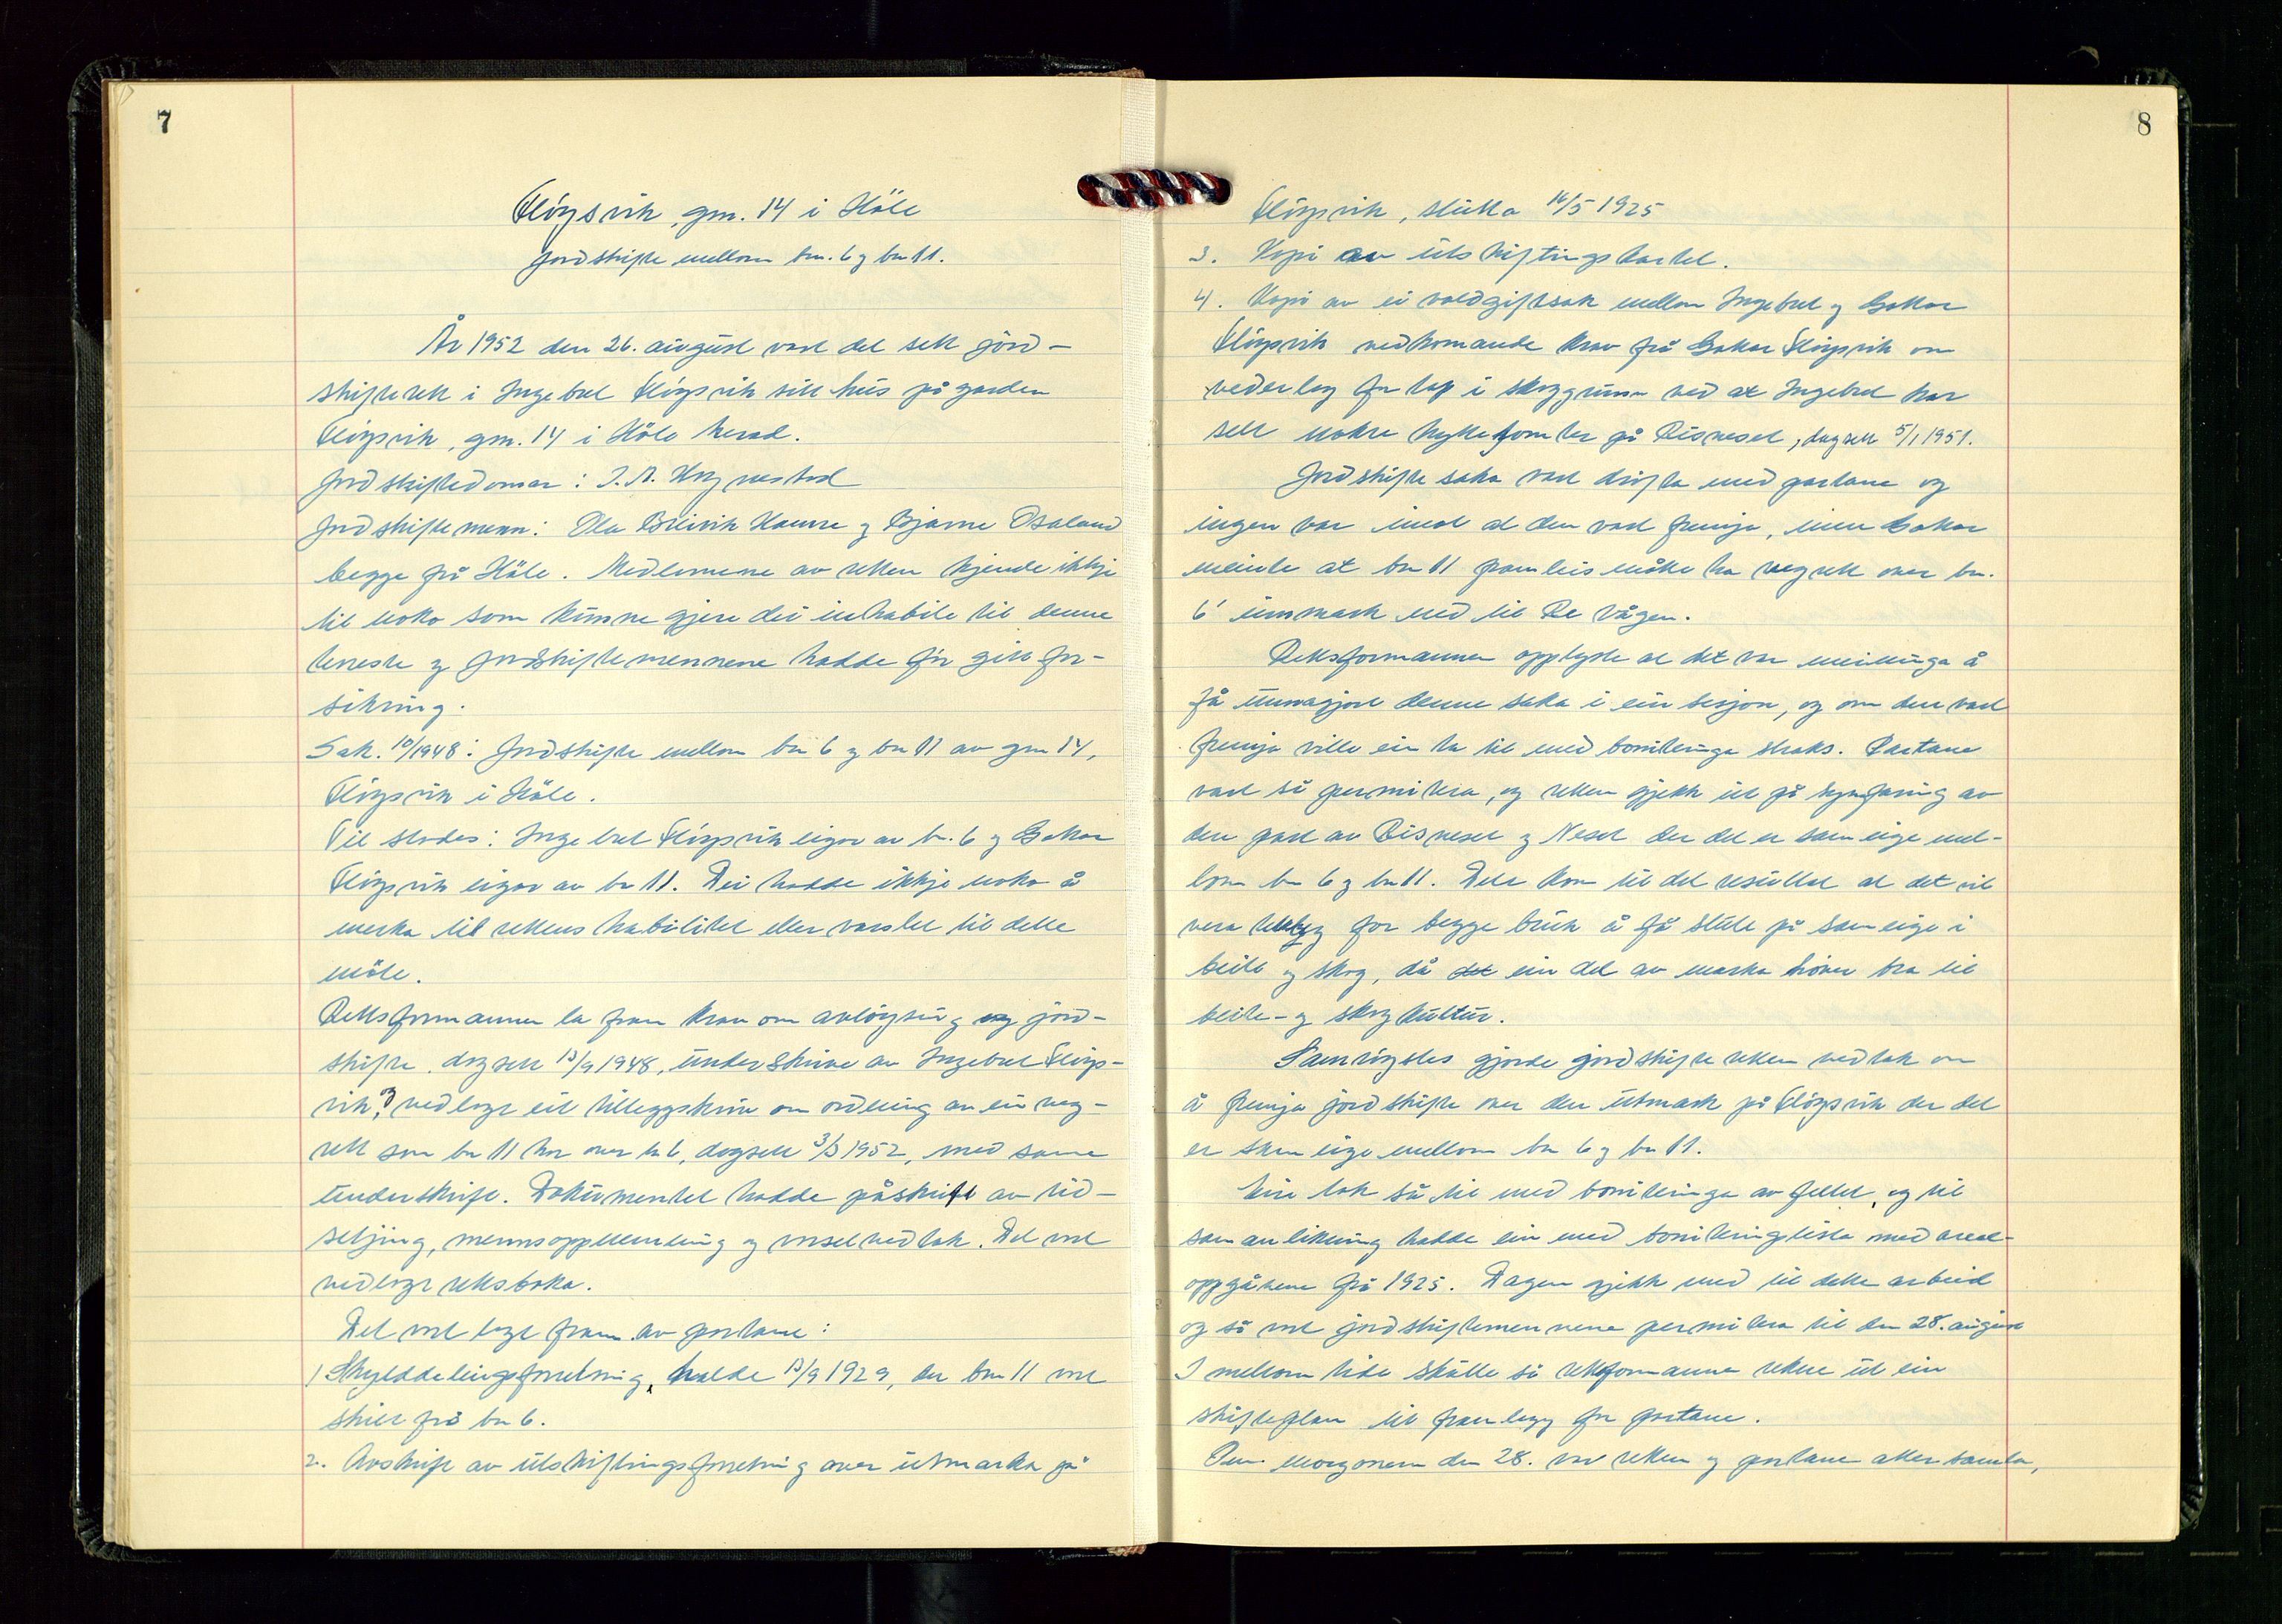 7
Fløysvik, gm. 14 i Höle
Jordskifte mellom bn. 6 og bn 11.
År 1952 den 26. august vart det sett jord-
skifterett i Ingebret Fløysvik sitt hus på garden
Fløysvik, gm. 14 i Höle herad.
Jordskiftedomar: T. A.
Jordskiftemenn: Ola Breivik Haune og Bjarne Osaland
begge frå Höle. Medlemene av retten kjende ikkje
til noko som kunne gjere dei inhabile til denne
teneste og jordskiftemennene hadde før gitt for-
sikring.
Sak. 10/1948: Jordskifte mellom bn 6 og bn 11 av gm 14,
Fløysvik i Höle.
Til stades: Ingebret Fløysvik eigar av bn. 6 og Goltar
Fløysvik eigar av bn 11. Dei hadde ikkje noko å
merka til rettens habilitet eller varslet til dette
möte.
Rettsformannen la fram krav om avløysing og jord-
skifte, dagsett 13/9 1948, underskrive av Ingebret Fløys-
vik, og vedlagt eit tilleggskriv om ordning av ein veg-
rett som bn 11 har over bn 6, dagsett 3/3 1952, med same
underskrift. Dokumentet hadde påskrift av tid-
setjing, mennsoppnemning og varselvedtak. Det vart
vedlagt rettsboka.
Det vart lagt fram av partane:
1 Skylddelingsforretning, halde 13/9 1929, der bn 11 vart
skilt frå bn 6.
2. Avskrift av utskiftingsforretning over utmarka på
8
Fløysvik, slutta 16/5 1925
3. Kopi av utskiftingskartet.
4. Kopi av ei voldgiftsak mellom Ingebret og Goltar
Fløysvik vedkomande krav frå Goltar Fløysvik om
vederlag for tap i skoggrunn ved at Ingebret har
selt nokre hyttetomter på Risneset, dagsett 5/1 1951.
Jordskiftesaka vart drøfta med partane og
ingen var imot at den vart fremja, men Goltar
meinte at bn 11 framleis måtte ha vegrett over bn.
6' innmark ned til Re vågen.
Rettsformannen opplyste at det var meininga å
få unnagjort denne saka i ein sesjon, og om den vart
fremja ville ein ta til med boniteringa straks. Partane
vart så permitera, og retten gjekk ut på synfaring av
den part av Risneset og Neset der det er sameige mel-
lom bn 6 og bn 11. Dete kom til det resultat at det vil
vera tenleg for begge bruk å få slutt på sameige i
beite og skog, då det ein del av marka høver bra til
beite- og skogkultur.
Samrøystes gjorde jordskifteretten vedtak om
å fremja jordskifte over den utmark på Fløysvik der det
er sameige mellom bn 6 og bn 11.
Ein tok så til med boniteringa av feltet, og til
samanlikning hadde ein med boniteringslista med areal-
oppgåvene frå 1925. Dagen gjekk med til dette arbeid
og så vart jordskiftemennene permitera til den 28. august
I mellom tida skulle så rettsformannen rekne ut ein
skifteplan til framlegg for partane.
Om morgonen den 28. var retten og partane atter samla,